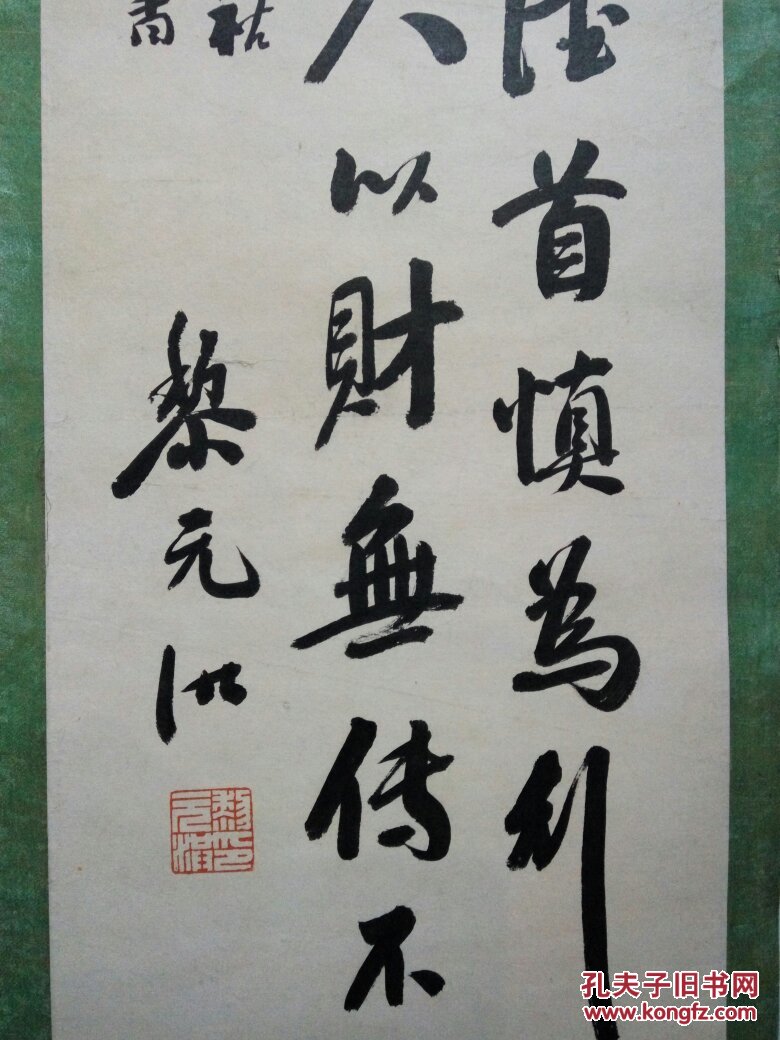 首慎為
人以財無傳不
黎元洪
黎元洪印
孔夫子旧书网
www.kongfz.com